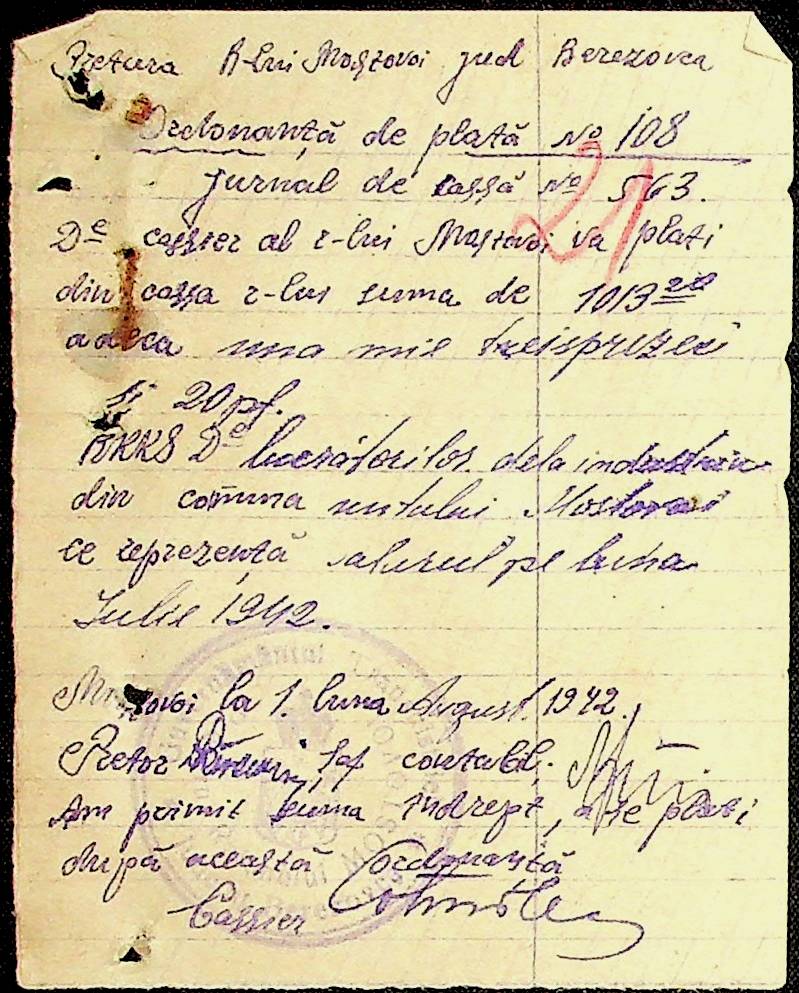 Pretura R-lui Mostovoi jud Berezovca
Ordonanță de plată No 108
21
Jurnal de cassă No 563.
De cassier al r-lui Mostovoi va plati
din cassa r-lui suma de 1013 20
adeca una mie treisprizeci
și 20 pf.
RKKS De lucrătorilor dela industria
din comuna Mostovoi
ce reprezentă pe luna
Iulie 1942.
la 1. luna August. 1942.
Pretor Șef contabil.
Am primit suma indrept, a se plati
după această Ordonanță
Cassier